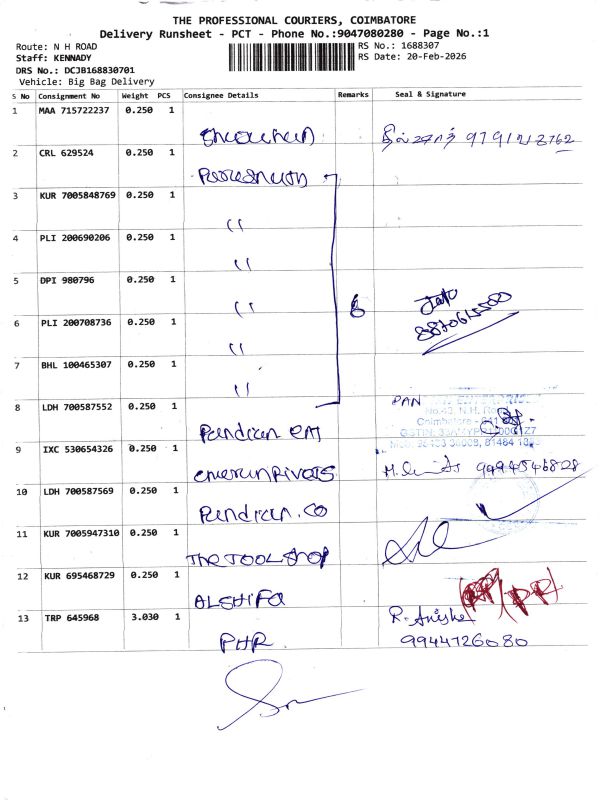 THE PROFESSIONAL COURIERS, COIMBATORE
Delivery Runsheet - PCT - Phone No.:9047080280 - Page No.:1
Route: N H ROAD
Staff: KENNADY
DRS No.: DCJB168830701
Vehicle: Big Bag Delivery
RS No.: 1688307
RS Date: 20-Feb-2026
S No Consignment No Weight PCS Consignee Details Remarks Seal & Signature
1 MAA 715722237 0.250 1
2 CRL 629524 0.250 1
3 KUR 7005848769 0.250 1
"
4 PLI 200690206 0.250 1
"
5 DPI 980796 0.250 1
" 6
6 PLI 200708736 0.250 1
"
7 BHL 100465307 0.250 1
"
8 LDH 700587552 0.250 1 PAN
No.43, N.H. Road
Coimbatore
Pandian
9 IXC 530654326 0.250 1
9994546828
10 LDH 700587569 0.250 1
Pandian.co
11 KUR 7005947310 0.250 1
THE TOOL SHOP
12 KUR 695468729 0.250 1
ALSHIFA
13 TRP 645968 3.030 1 R. Anisha
PHR 9944726080